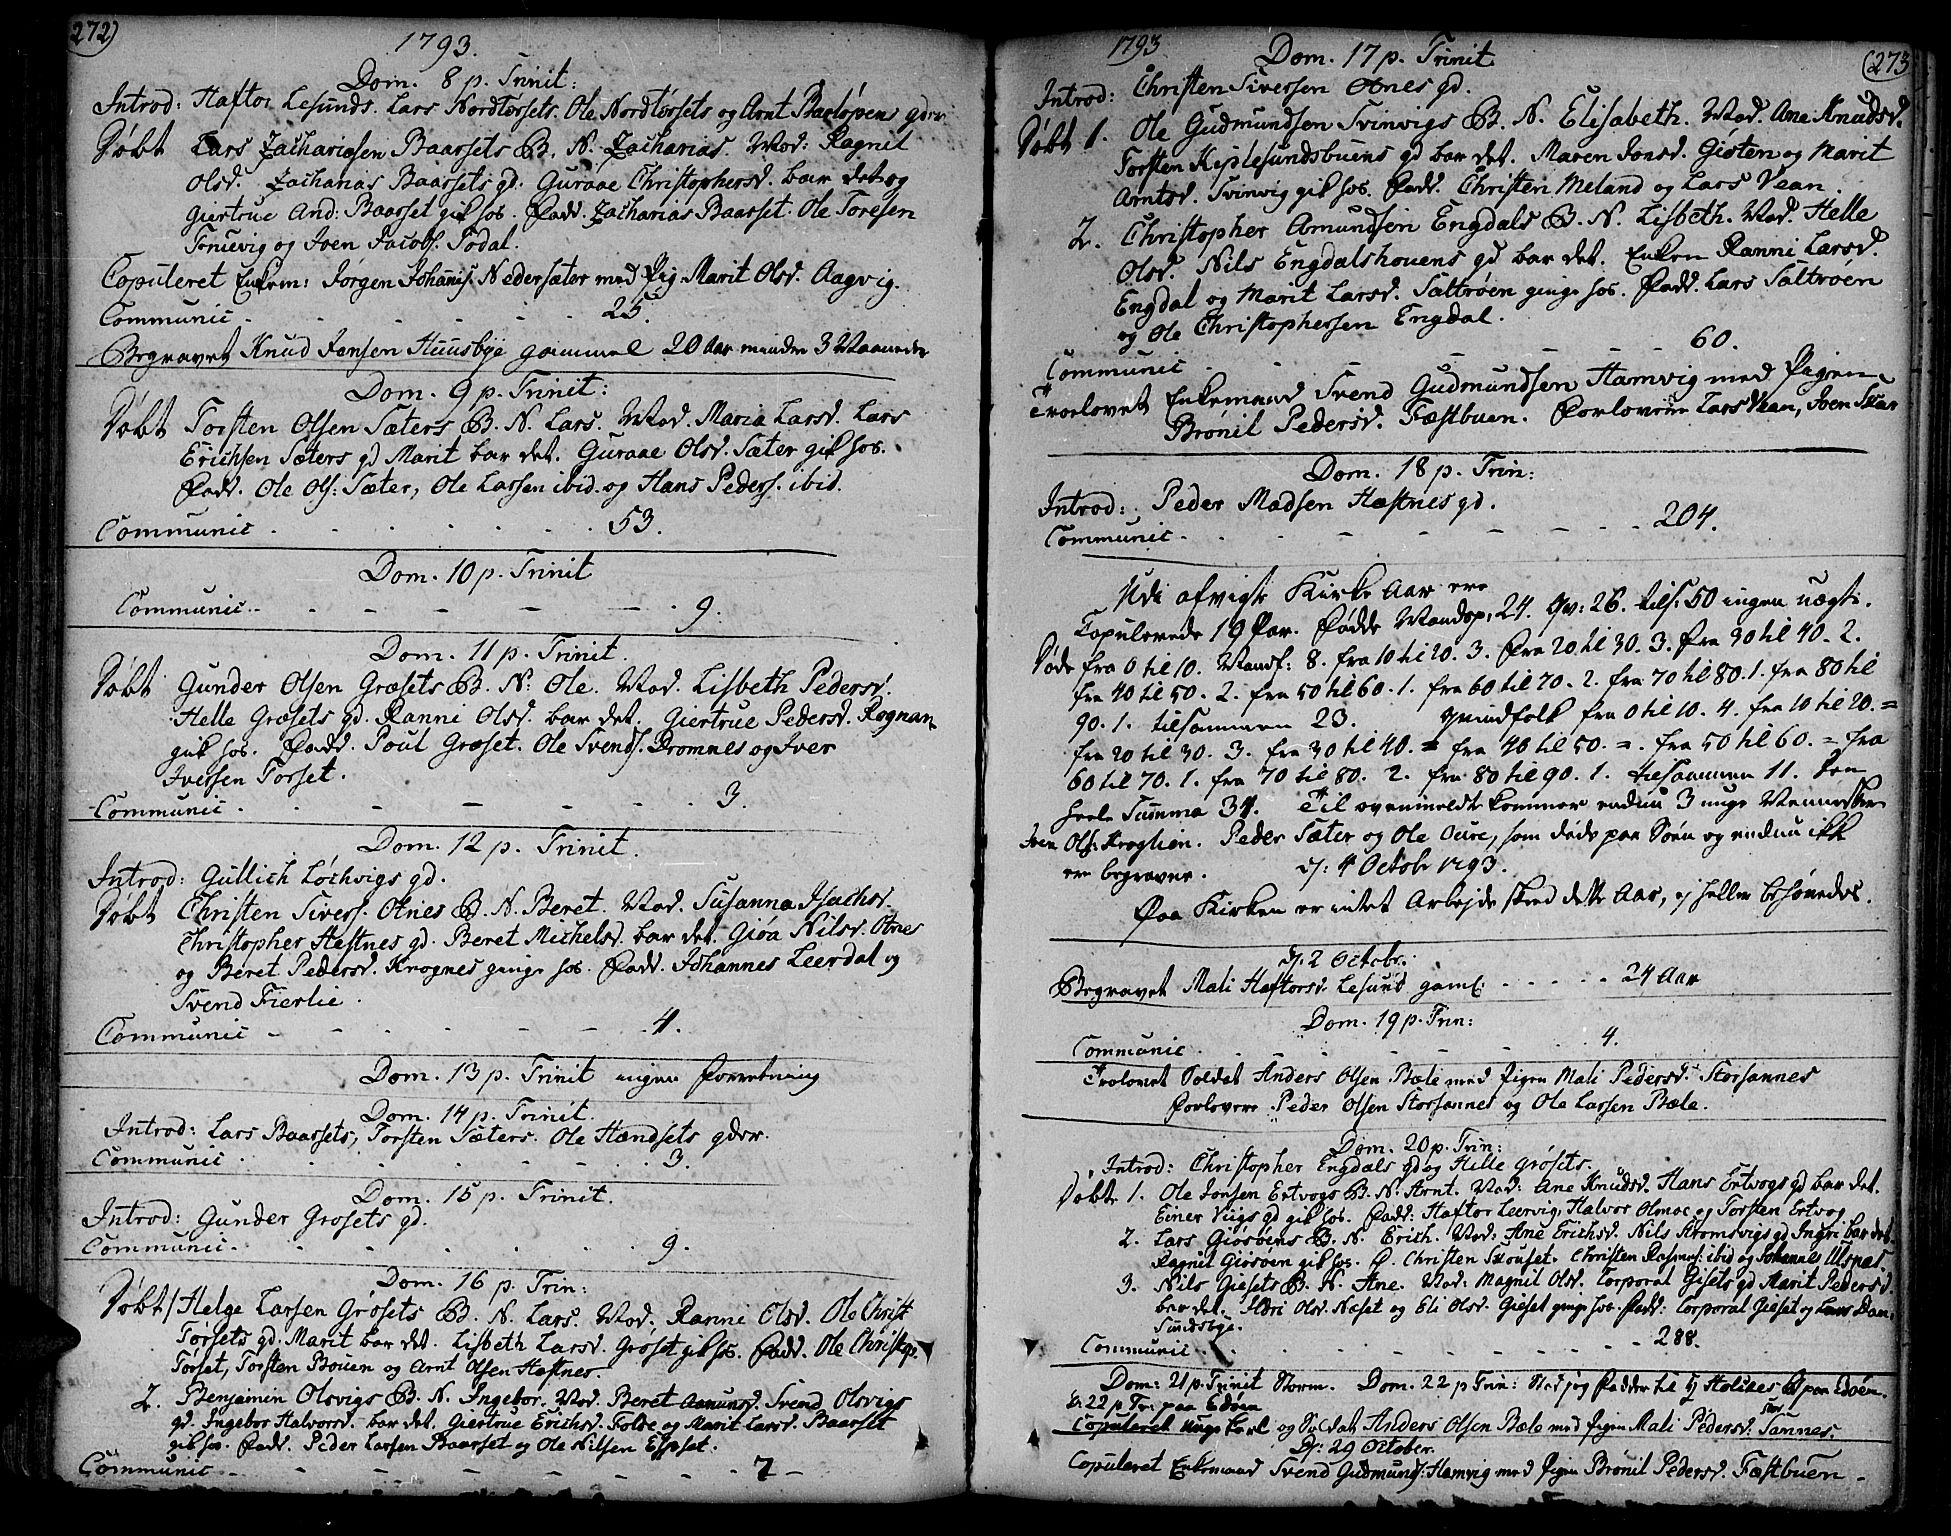 272)
1793.
Dom. 8 p. Trinit:
Introd: Haftor Lesunds. Lars Nordtørsets. Ole Nordtørsets og Arnt Barløpens gdr
Døbt Lars Zachariasen Baarsets B. N. Zacharias. Mod: Ragnil
Olsd. Zacharias Baarsets gd. Guraae Christophersd. bar det og
Giertrue And: Baarset gik hos. Fadd. Zacharias Baarset. Ole Toresen
og Joen Jacobs. Todal.
Copuleret Enkem: Jørgen Johannis. Nedersæter med Pig. Marit Olsd. Aagvig.
Communic - - - - - - 25.
Begravet Knud Jensen Huusbye gammel 20 Aar mindre 3 Maaneder
Dom. 9 p. Trinit:
Døbt Torsten Olsen Sæters B. N. Lars. Mod. Maria Larsd. Lars
Erichsen Sæters gd Marit bar det. Guraae Olsd. Sæter gik hos.
Fadd. Ole Ols: Sæter, Ole Larsen ibid. og Hans Peders. ibid.
Communic - - - - - - 53.
Dom. 10 p. Trinit
Communic - - - - - - 9.
Dom. 11 p. Trinit.
Døbt Gunder Olsen Græsets B. N: Ole. Mod. Lisbeth Pedersd.
Helle Græsets gd. Ranni Olsd. bar det. Giertrue Pedersd. Rognan
gik hos. Fadd. Poul Græset. Ole Svends. Bromnes og Iver
Iversen Torset.
Communic - - - - - - 3.
Dom. 12 p. Trinit.
Introd: Gullich Løchvigs gd.
Døbt Christen Sivers. Otnes B. N. Beret. Mod. Susanna Isachsd.
Christopher Hestnes gd. Beret Michelsd. bar det. Giøa Nilsd. Otnes
og Beret Pedersd. Krognes ginge hos. Fadd. Johannes Leerdal og
Svend Fierlie.
Communic - - - - - - 4.
Dom. 13 p. Trinit ingen Forretning
Dom. 14 p. Trinit.
Introd: Lars Baarsets, Torsten Sæters. Ole Hændsets gder.
Communic - - - - - - 3.
Dom. 15 p. Trinit.
Introd: Gunder Grosets gd.
Communic - - - - - - 9.
Dom. 16 p. Trin:
Døbt 1 Helge Larsen Grøsets B. N. Lars. Mod. Ranni Olsd. Ole Christ
Tørsets gd. Marit bar det. Lisbeth Larsd. Grøset gik hos. Fadd. Ole Christop.
Torset, Torsten Bouen og Arnt Olsen Hestnes.
2. Benjamin Olsvigs B. N. Ingebor. Mod. Beret Amunsd. Svend Olsvigs
gd. Ingebor Halvorsd. bar det. Giertrue Erichsd. Foldøe og Marit Larsd. Baarset
gik hos. Fadd. Peder Larsen Baarset og Ole Nilsen Espset.
Communic - - - - - - 7 -
1793
(273
Dom. 17 p. Trinit.
Introd: Christen Siversen Otnes gd.
Døbt 1. Ole Gudmundsen Svinvigs B. N. Elisabeth. Mod. Ane Knudsd.
Torsten Kiplesundsbuens gd bar det. Maren Jonsd. Giøten og Marit
Arntsd. Svinvig gik hos. Fadd. Christen Meland og Lars Vean.
2. Christopher Amundsen Engdals B. N. Lisbeth. Mod. Helle
Olsd. Nils Engdalshouens gd bar det. Enken Ranni Larsd.
Engdal og Marit Larsd. Saltrøen ginge hos. Fadd. Lars Saltrøen
og Ole Christophersen Engdal.
Communic - - - - - - 60.
Troelovet Enkemand Svend Gudmundsen Hamvig med Pigen
Brønil Pedersd. Fæstbuen. Forlovere Lars Vean, Iven Skar
Dom. 18 p. Trin:
Introd: Peder Madsen Hæstnes gd.
Communic - - - - - - 204.
Udi afvigte Kirke Aar ere
Copulerede 19 Par. Fødde Mandsp: 24. Qv: 26. tils: 50 ingen uægte.
Døde fra 0 til 10. Mandk: 8. fra 10 til 20. 3. fra 20 til 30. 3. fra 30 til 40. 2.
fra 40 til 50. 2. fra 50 til 60. 1. fra 60 til 70. 2. fra 70 til 80. 1. fra 80 til
90. 1. tilsammen 23. Qvindfolk fra 0 til 10. 4. fra 10 til 20. =
fra 20 til 30. 3. fra 30 til 40. = fra 40 til 50. =. fra 50 til 60. = fra
60 til 70. 1. fra 70 til 80. 2. fra 80 til 90. 1. tilsammen 11. Den
heele Summa 34. Til ovenmeldte kommer endnu 3 unge Mennisker
Iven Ols: Kroglien. Peder Sæter og Ole Oure, som døde paa Søen og endnu ikke
ere begravne. d: 4 Octobr 1793.
Paa Kirken er intet Arbejde skeed dette Aar, ej heller behøvedes.
d: 2 Octobr:
Begravet Mali Haftorsd. Lesund gaml: - - - - - 24 Aar
Dom. 19 p. Trin:
Communic - - - - - - 4.
Trolovet Soldat Anders Olsen Bæle med Pigen Mali Pedersd. Storsannes
Forlovere: Peder Olsen Storsannes og Ole Larsen Bæle.
Dom. 20 p. Trin:
Introd: Christopher Engdals gd og Helle Grøsets.
Døbt 1. Ole Jonsen Ertvogs B. N. Arnt. Mod: Ane Knudsd. Hans Ertvogs gd bar det.
Einer Viigs gd gik hos. Fadd: Haftor Leervig, Halvor Olmoe og Torsten Ertvog
2. Lars Giøsøens B. N. Erich. Mod: Ane Erichsd. Nils Strømsvigs gd Ingri bar det.
Ragnil Giøsøen gik hos. F. Christen Skouset. Christen Rasmus: ibid og Johannes Ulsnes.
3. Nils Giesets B. N. Ane. Mod: Magnil Olsd. Corporal Gisets gd Marit Pedersd.
bar det. Olsd. Næset og Eli Olsd. Gieset ginge hos. Fadd: Corporal Gieset og Lars
Sundsbye.
Communic - - - - - - 288.
Dom: 21 p. Trinit Storm. Dom. 22 p Trin: paa Edøen.
D. 22 p Tr: paa Edøen
Copuleret unge Karl og Soldat Anders Olsen Bæle med Pigen Mali Pedersd: Stor Sannes.
D: 29 October.
Copuleret Enkemand Svend Gudmunds: Hamvig med Pigen Brønil Pedersd. Fæstbuen -